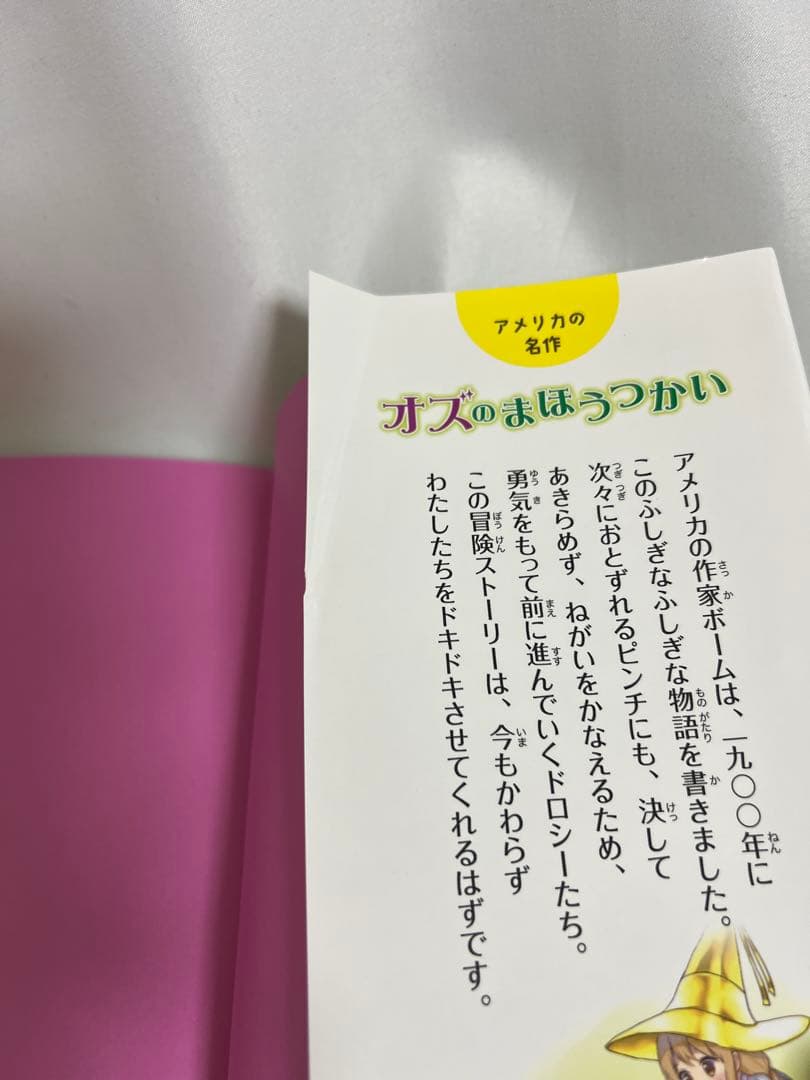 アメリカの
名作
オズのまほうつかい
アメリカの作家ボームは、一九〇〇年に
このふしぎなふしぎな物語を書きました。
次々におとずれるピンチにも、決して
あきらめず、ねがいをかなえるため、
勇気をもって前に進んでいくドロシーたち。
この冒険ストーリーは、今もかわらず
わたしたちをドキドキさせてくれるはずです。